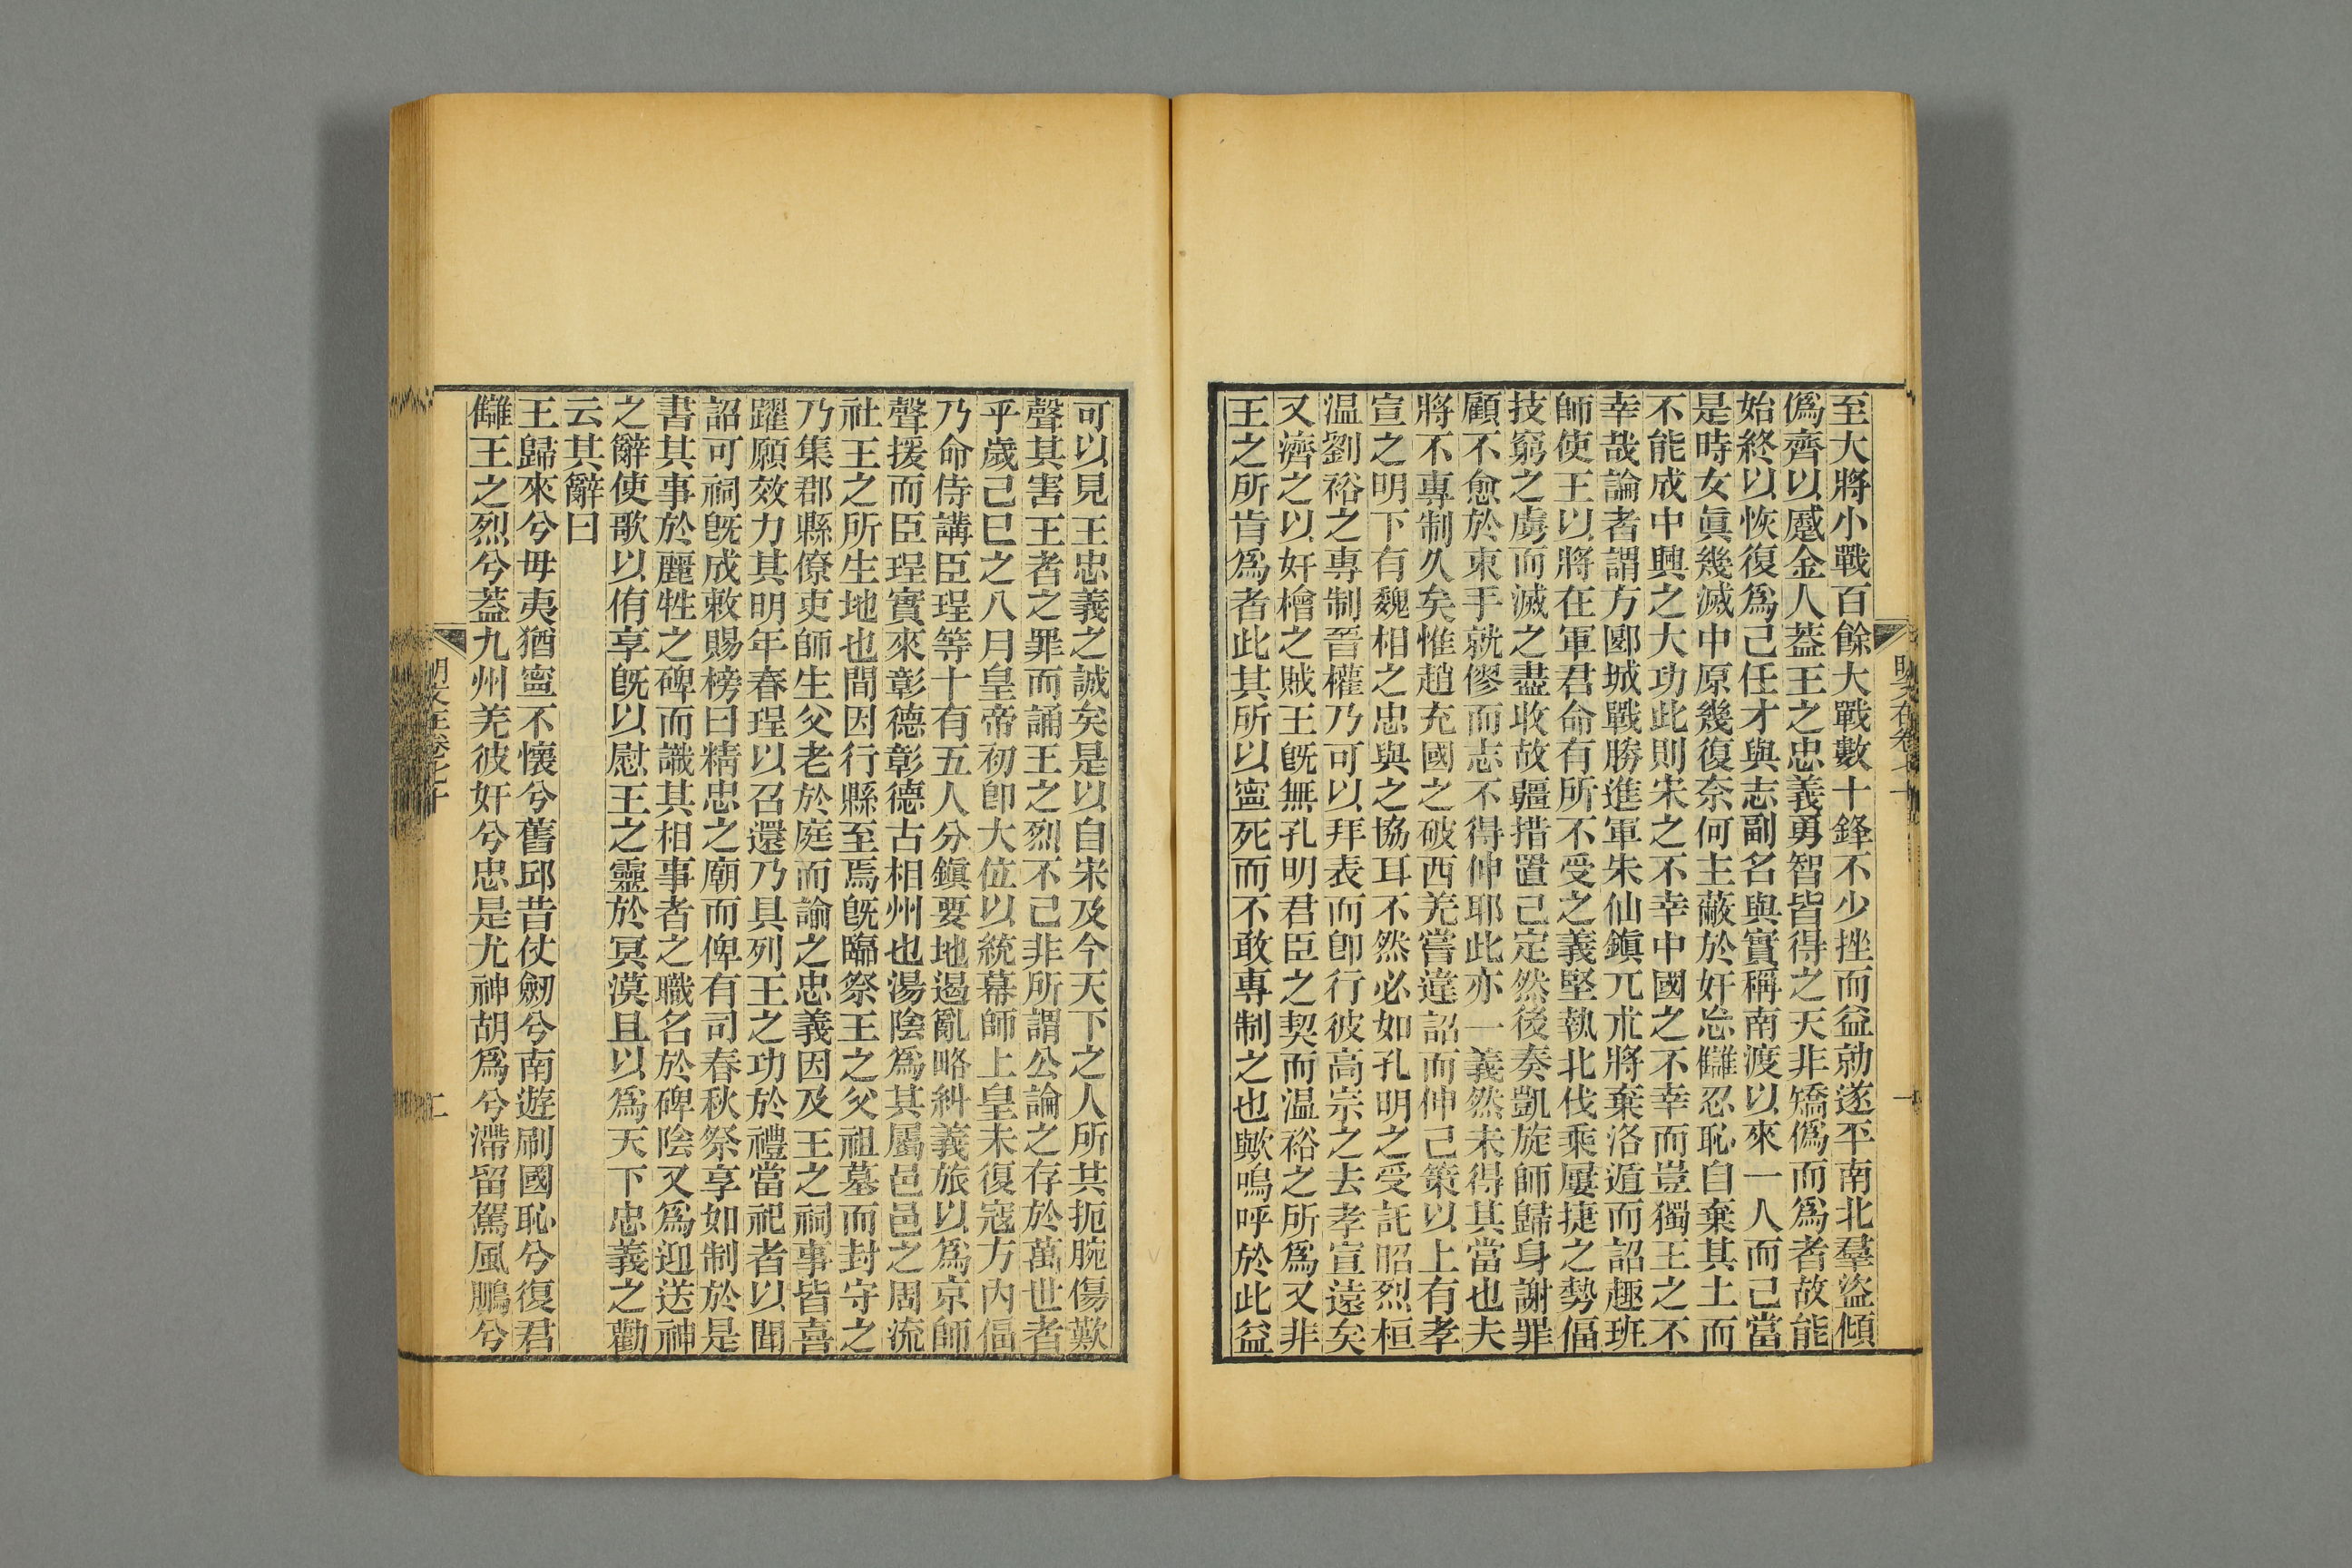 至大將小戰百餘大戰數十鋒不少挫而益勍遂平南北羣盜傾
僞齊以蹙金人蓋王之忠義勇智皆得之天非矯僞而爲者故能
始終以恢復爲己任才與志副名與實稱南渡以來一人而己當
是時女眞幾滅中原幾復奈何主蔽於奸忘讎忍恥自棄其土而
不能成中興之大功此則宋之不幸中國之不幸而豈獨王之不
幸哉論者謂方郾城戰勝進軍朱仙鎭兀朮將棄洛遁而詔趣班
師使王以將在軍君命有所不受之義堅執北伐乘屢捷之勢偪
技窮之虜而滅之盡收故疆措置己定然後奏凱旋師歸身謝罪
顧不愈於束手就僇而志不得伸耶此亦一義然未得其當也夫
將不專制久矣惟趙充國之破西羌嘗違詔而伸己策以上有孝
宣之明下有魏相之忠與之協耳不然必如孔明之受託昭烈桓
温劉裕之專制晉權乃可以拜表而卽行彼高宗之去孝宣遠矣
又濟之以奸檜之賊王旣無孔明君臣之契而温裕之所爲又非
王之所肯爲者此其所以寍死而不敢專制之也歟嗚呼於此益
可以見王忠義之誠矣是以自宋及今天下之人所共扼腕傷歎
聲其害王者之罪而誦王之烈不己非所謂公論之存於萬世者
乎歲己巳之八月皇帝初卽大位以統幕師上皇未復寇方內偪
乃命侍講臣珵等十有五人分鎭要地遏亂略糾義旅以爲京師
聲援而臣珵實來彰德彰德古相州也湯陰爲其屬邑邑之周流
社王之所生地也間因行縣至焉旣臨祭王之父祖墓而封守之
乃集郡縣僚吏師生父老於庭而諭之忠義因及王之祠事皆喜
躍願效力其明年春珵以召還乃具列王之功於禮當祀者以聞
詔可祠旣成敕賜榜曰精忠之廟而俾有司春秋祭享如制於是
書其事於麗牲之碑而識其相事者之職名於碑陰又爲迎送神
之辭使歌以侑享旣以慰王之靈於冥漠且以爲天下忠義之勸
云其辭曰
王歸來兮毋夷猶寍不懷兮舊邱昔仗劒兮南遊刷國恥兮復君
讎王之烈兮蓋九州羌彼奸兮忠是尤神胡爲兮滯留駕風鵬兮